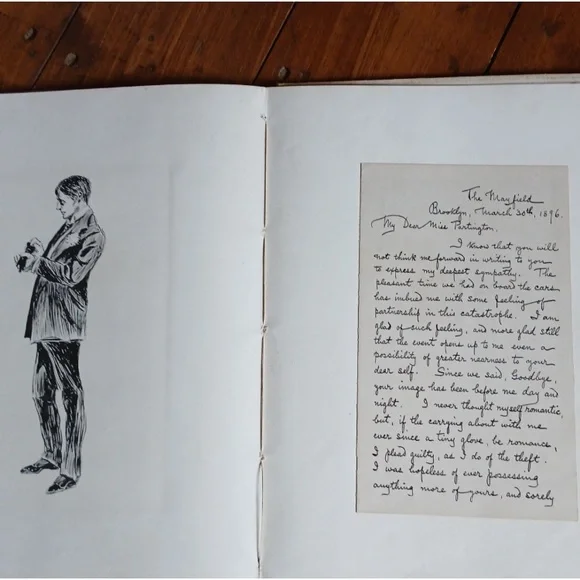 The Mayfield
Brooklyn, March 30th, 1896.
My Dear Miss Partington,
I know that you will
not think me forward in writing to you
to express my deepest sympathy. The
pleasant time we had on board the cars
has imbued me with some feeling of
partnership in this catastrophe. I am
glad of such feeling, and more glad still
that the event opens up to me even a
possibility of greater nearness to your
dear self. Since we said, Goodbye,
your image has been before me day and
night. I never thought myself romantic,
but, if the carrying about with me
ever since a tiny glove, be romance,
I plead guilty, as I do of the theft.
I was hopeless of ever possessing
anything more of yours, and sorely